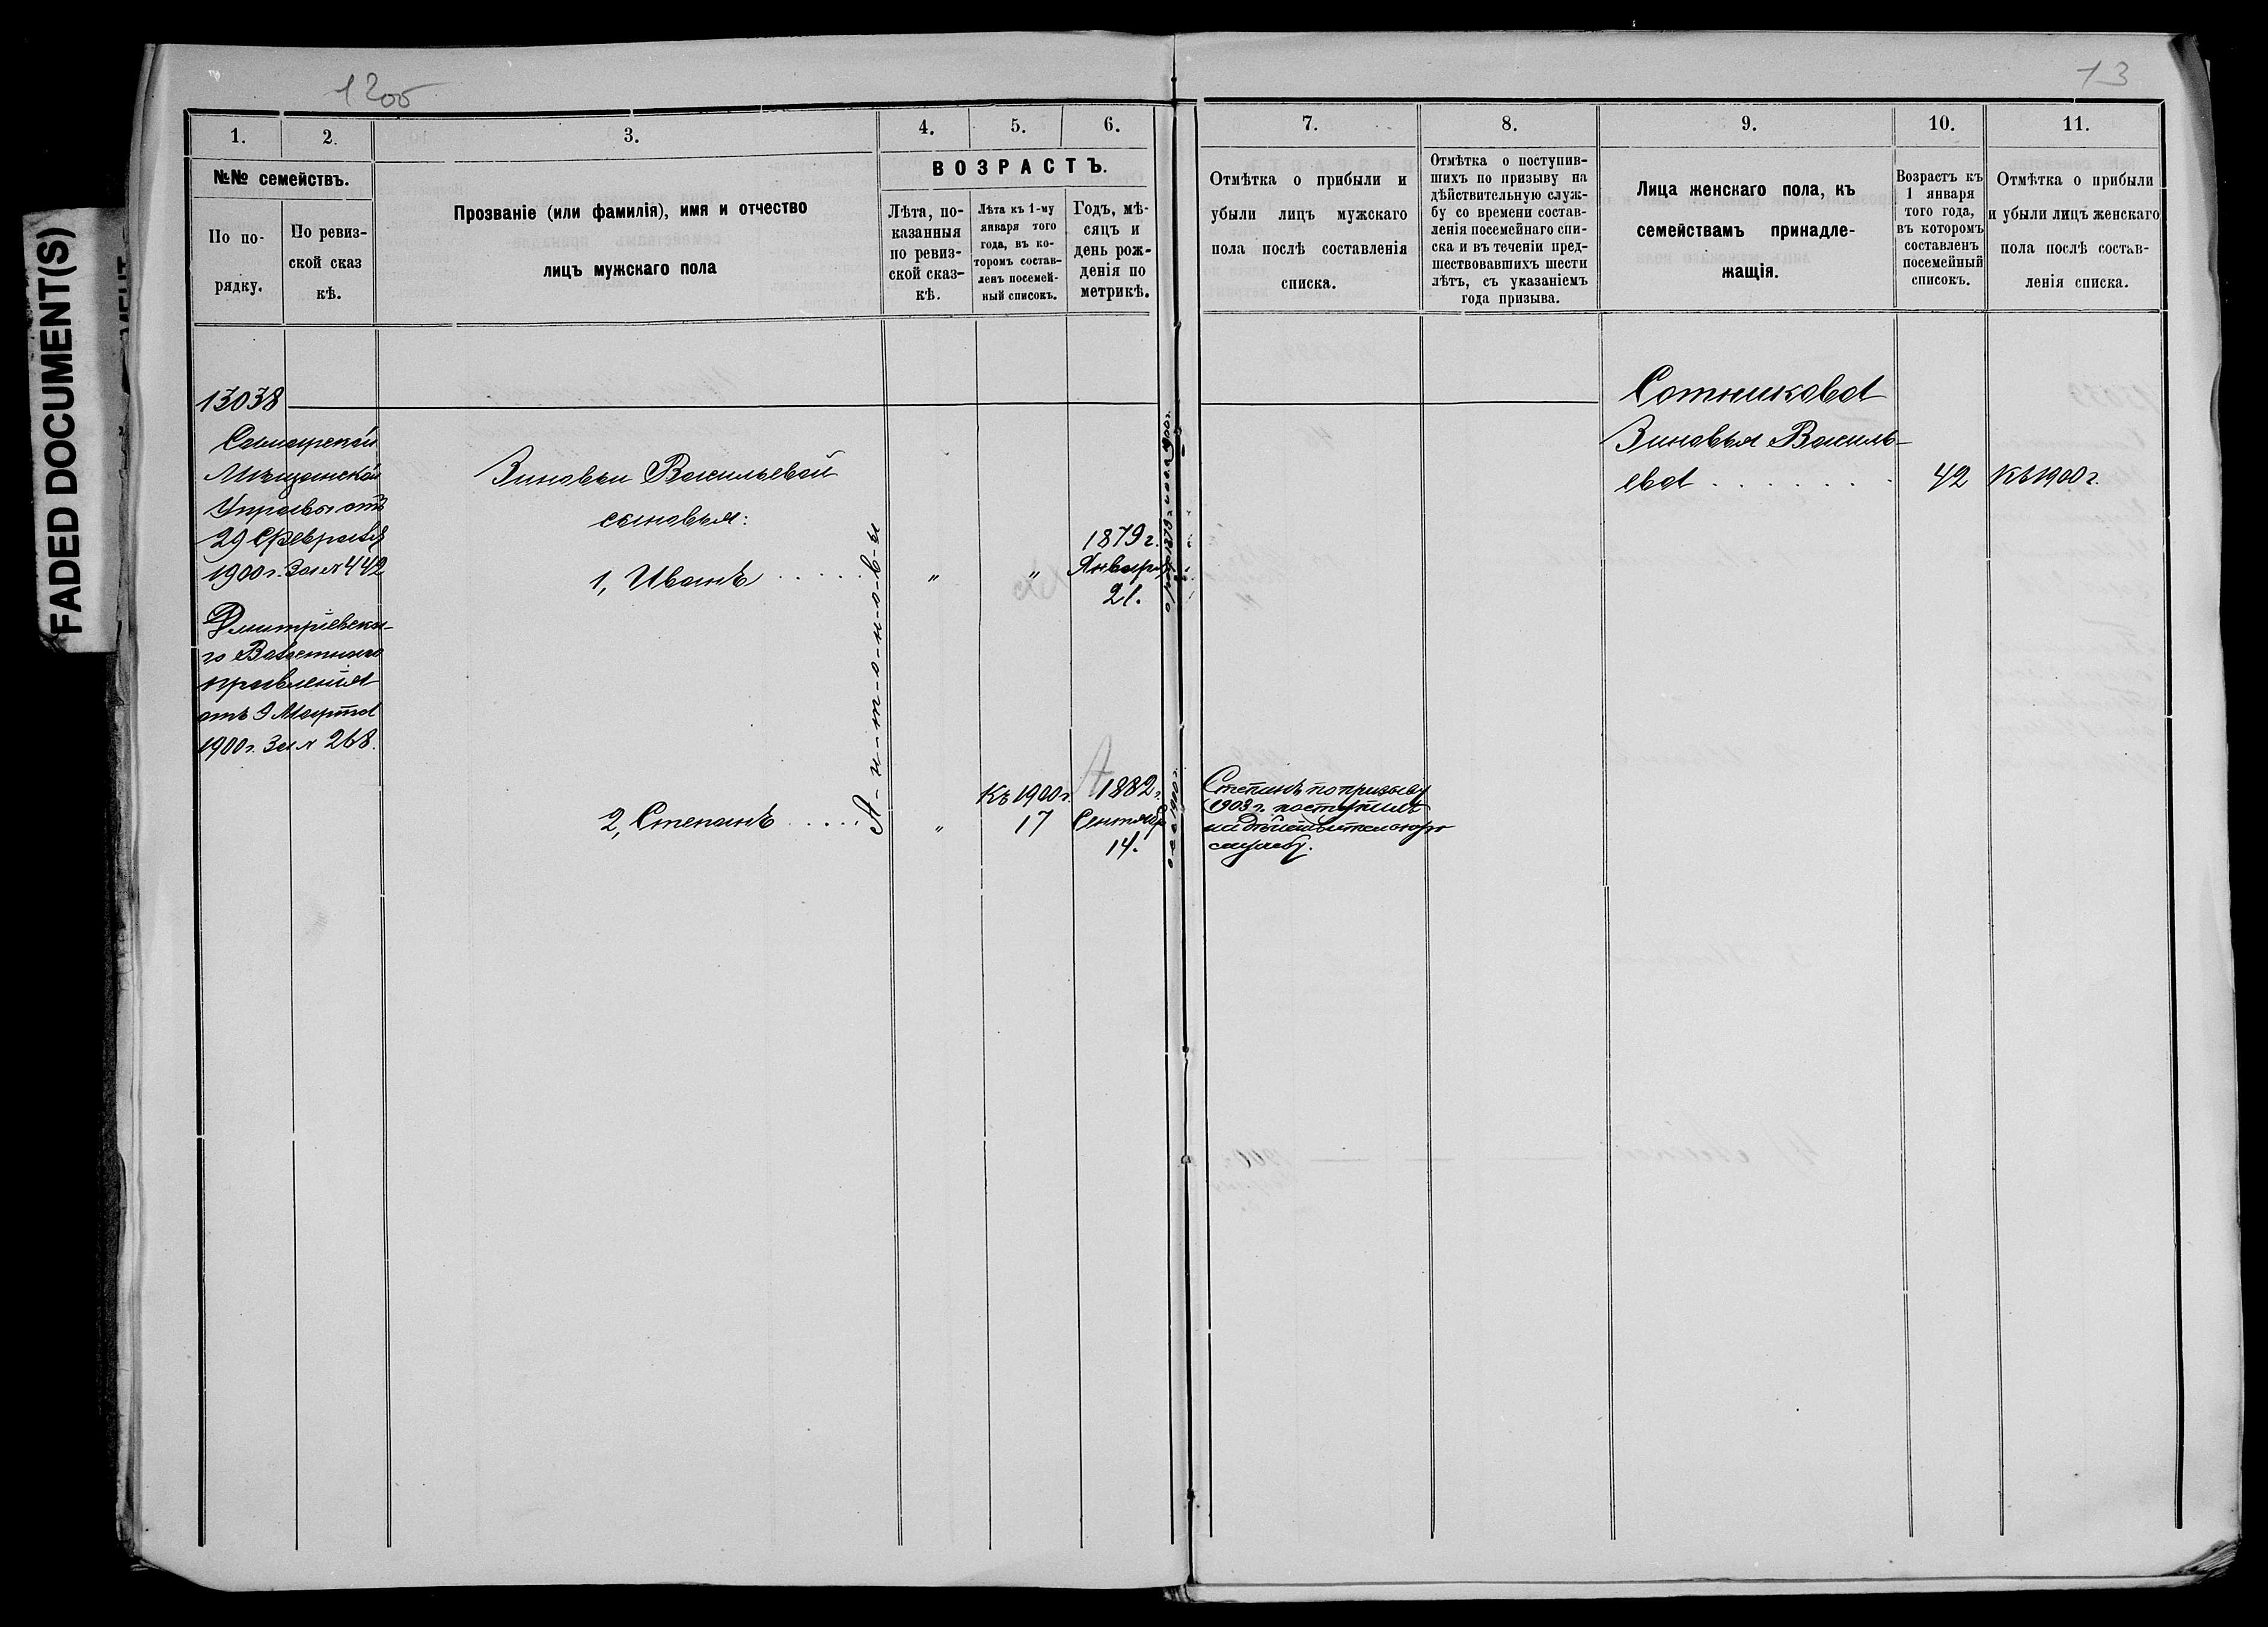 FADED DOCUMENT(S)
1200
13
1.
2.
3.
4.
5.
6.
7.
8.
9.
10.
11.
№№ семействъ.
По по-
рядку.
По ревиз-
ской сказ
кѣ.
Прозваніе (или фамилія), имя и отчество
лицъ мужскаго пола
ВОЗРАСТЪ.
Лѣта, по-
казанныя
по ревиз-
ской сказ-
кѣ.
Лѣта къ 1-му
января того
года, въ ко-
торомъ состав-
ленъ посемей-
ный списокъ.
Годъ, мѣ-
сяцъ и
день рож-
денія по
метрикѣ.
Отмѣтка о прибыли и
убыли лицъ мужскаго
пола послѣ составленія
списка.
Отмѣтка о поступив-
шихъ по призыву на
дѣйствительную служ-
бу со времени состав-
ленія посемейнаго спи-
ска и въ теченіи пред-
шествовавшихъ шести
лѣтъ, съ указаніемъ
года призыва.
Лица женскаго пола, къ
семействамъ принадле-
жащія.
Возрастъ къ
1 января
того года,
въ которомъ
составленъ
посемейный
списокъ.
Отмѣтка о прибыли
и убыли лицъ женскаго
пола послѣ состав-
ленія списка.
13038
Самарской
Мѣщанской
Управы отъ
29 Февраля
1900 г. за № 442
Дмитріевска-
го Волостнаго
правленія
отъ 9 Марта
1900 г. за № 268.
Зиновьи Васильевой
сыновья:
1, Иванъ . . . . .
" "
1879 г.
Января
21.
А-н-т-о-н-о-в-ы
2, Степанъ . . . . .
"
Къ 1900 г.
17
1882 г.
Сентября
14.
Степанъ по призыву
1903 г. поступилъ
на дѣйствительную
службу.
Сотникова
Зиновья Василь-
ева . . . . . . . .
42
Къ 1900 г.